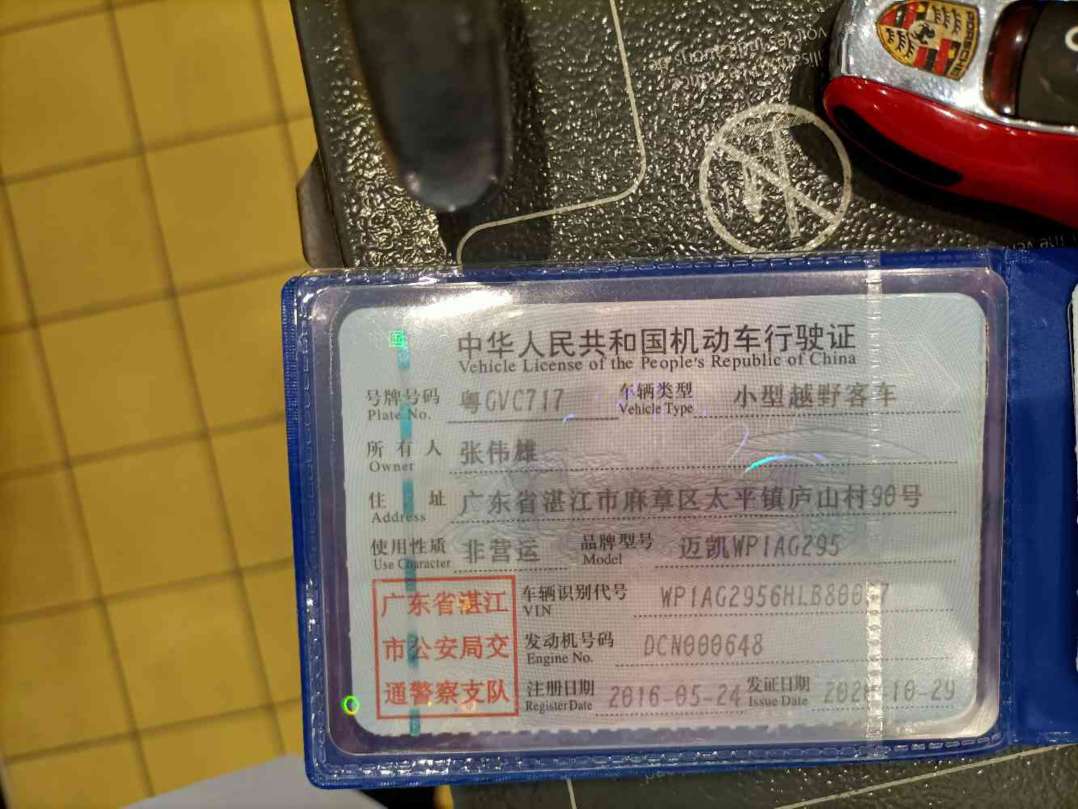 PORSCHE
中华人民共和国机动车行驶证
Vehicle License of the People's Republic of China
号牌号码 粤GVC717 车辆类型 小型越野客车
Plate No. Vehicle Type
所有人 张伟雄
Owner
住址 广东省湛江市麻章区太平镇庐山村90号
Address
使用性质 非营运 品牌型号 迈凯WP1AG295
Use Character Model
广东省湛江
市公安局交
通警察支队
车辆识别代号
VIN
发动机号码 DCN000648
Engine No.
注册日期 2016-05-24 发证日期
Register Date Issue Date